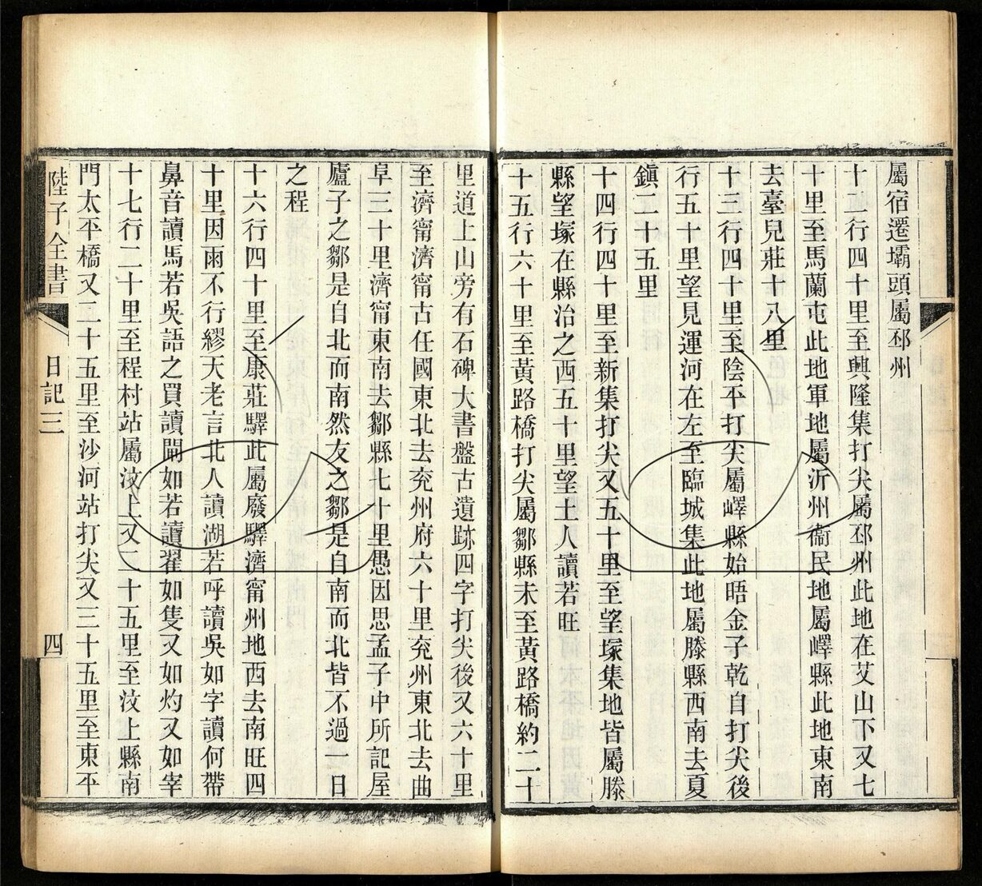 屬宿遷壩頭屬邳州
十二行四十里至興隆集打尖屬邳州此地在艾山下又七
十里至馬蘭屯此地軍地屬沂州衞民地屬嶧縣此地東南
去臺兒莊十八里
十三行四十里至陰平打尖屬嶧縣始晤金子乾自打尖後
行五十里望見運河在左至臨城集此地屬滕縣西南去夏
鎮二十五里
十四行四十里至新集打尖又五十里至望塚集地皆屬滕
縣望塚在縣治之西五十里望土人讀若旺
十五行六十里至黃路橋打尖屬鄒縣未至黃路橋約二十
里道上山旁有石碑大書盤古遺跡四字打尖後又六十里
至濟甯濟甯古任國東北去兗州府六十里兗州東北去曲
阜三十里濟甯東南去鄒縣七十里愚因思孟子中所記屋
廬子之鄒是自北而南然友之鄒是自南而北皆不過一日
之程
十六行四十里至康莊驛此屬廢驛濟甯州地西去南旺四
十里因雨不行繆天老言北人讀湖若呼讀吳如字讀何帶
鼻音讀馬若吳語之買讀閙如若讀翟如隻又如灼又如宰
十七行二十里至程村站屬汶上又二十五里至汶上縣南
門太平橋又二十五里至沙河站打尖又三十五里至東平
陸子全書
日記三
四